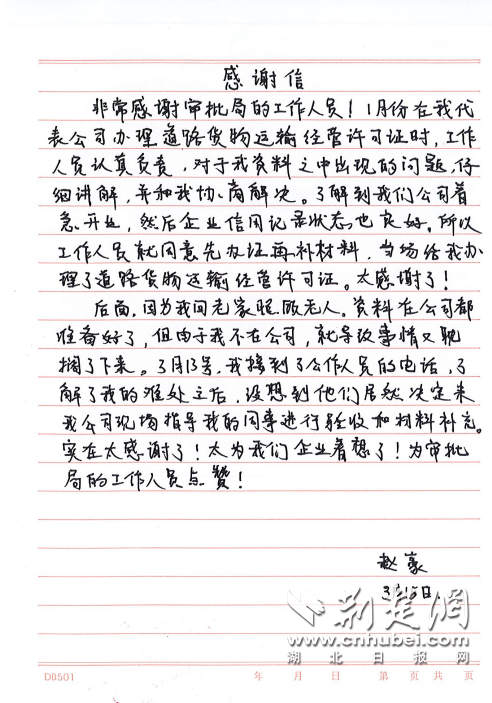 感谢信
非常感谢审批局的工作人员！1月份在我代
表公司办理道路货物运输经营许可证时，工作
人员认真负责，对于我资料之中出现的问题，仔
细讲解，并和我协商解决。了解到我们公司着
急开业，然后企业信用记录状态也良好。所以
工作人员就同意先办证再补材料，当场给我办
理了道路货物运输经营许可证。太感谢了！
后面，因为我回老家服
无人。资料在公司都
准备好了，但由于我不在公司，就导致事情又耽
搁了下来。3月13号，我接到了工作人员的电话，了
解了我的难处之后，没想到他们居然决定来
我公司现场指导我的同事进行验收和材料补充。
实在太感谢了！太为我们企业着想了！为审批
局的工作人员点赞！
赵豪
3月15日.
荆楚网
www.cnhubei.com
湖北日报网
D8501
年 月 日 第 页 共 页